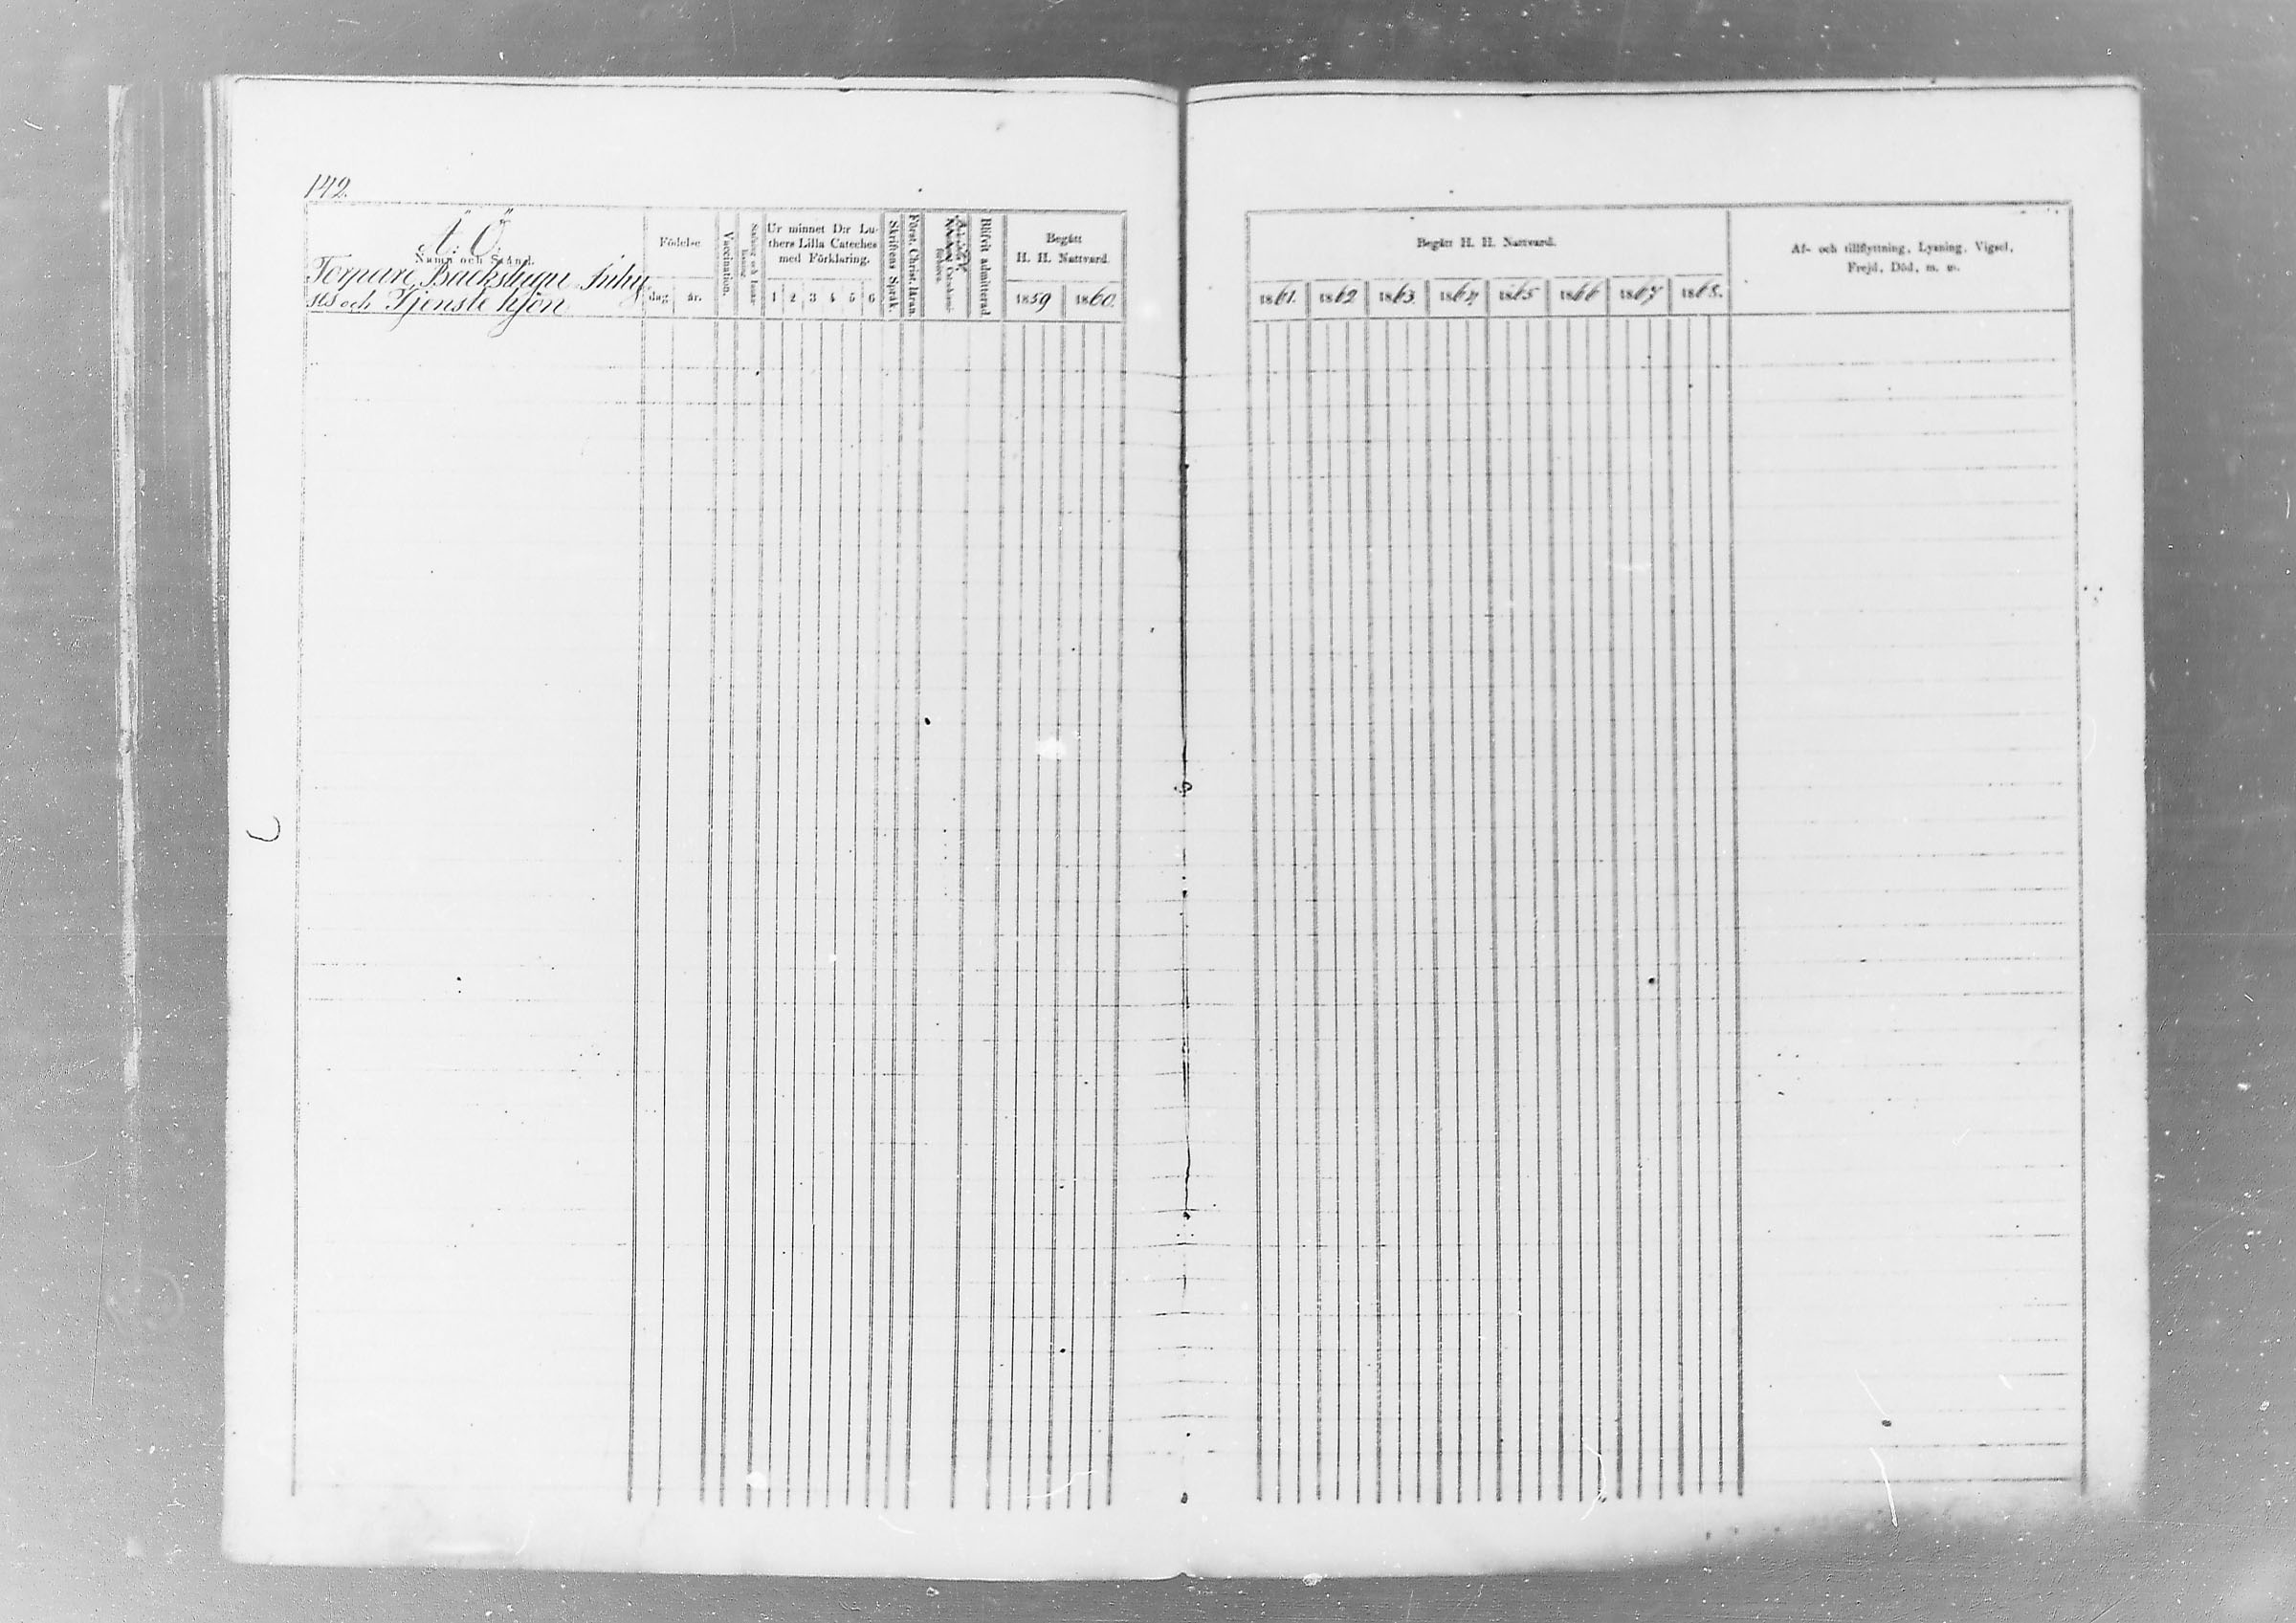 142.
Ä: Ö
Namn och Stånd.
Torpare, Backstugu Inhy
ses och Tjenste hjon
Födelse
dag
år.
Vaccination.
Ur minnet D:r Lu-
thers Lilla Cateches
med Förklaring.
1 2 3 4 5 6
Skriftens Språk.
Först. Christ. läran.
Blifvit admitterad
Begått
H. H. Nattvard.
1859 1860.
Begått H. H. Nattvard.
1861. 1862 1863. 1864 1865 1866 1867 1868.
Af- och tillflyttning, Lysning, Vigsel,
Frejd, Död, m. m.